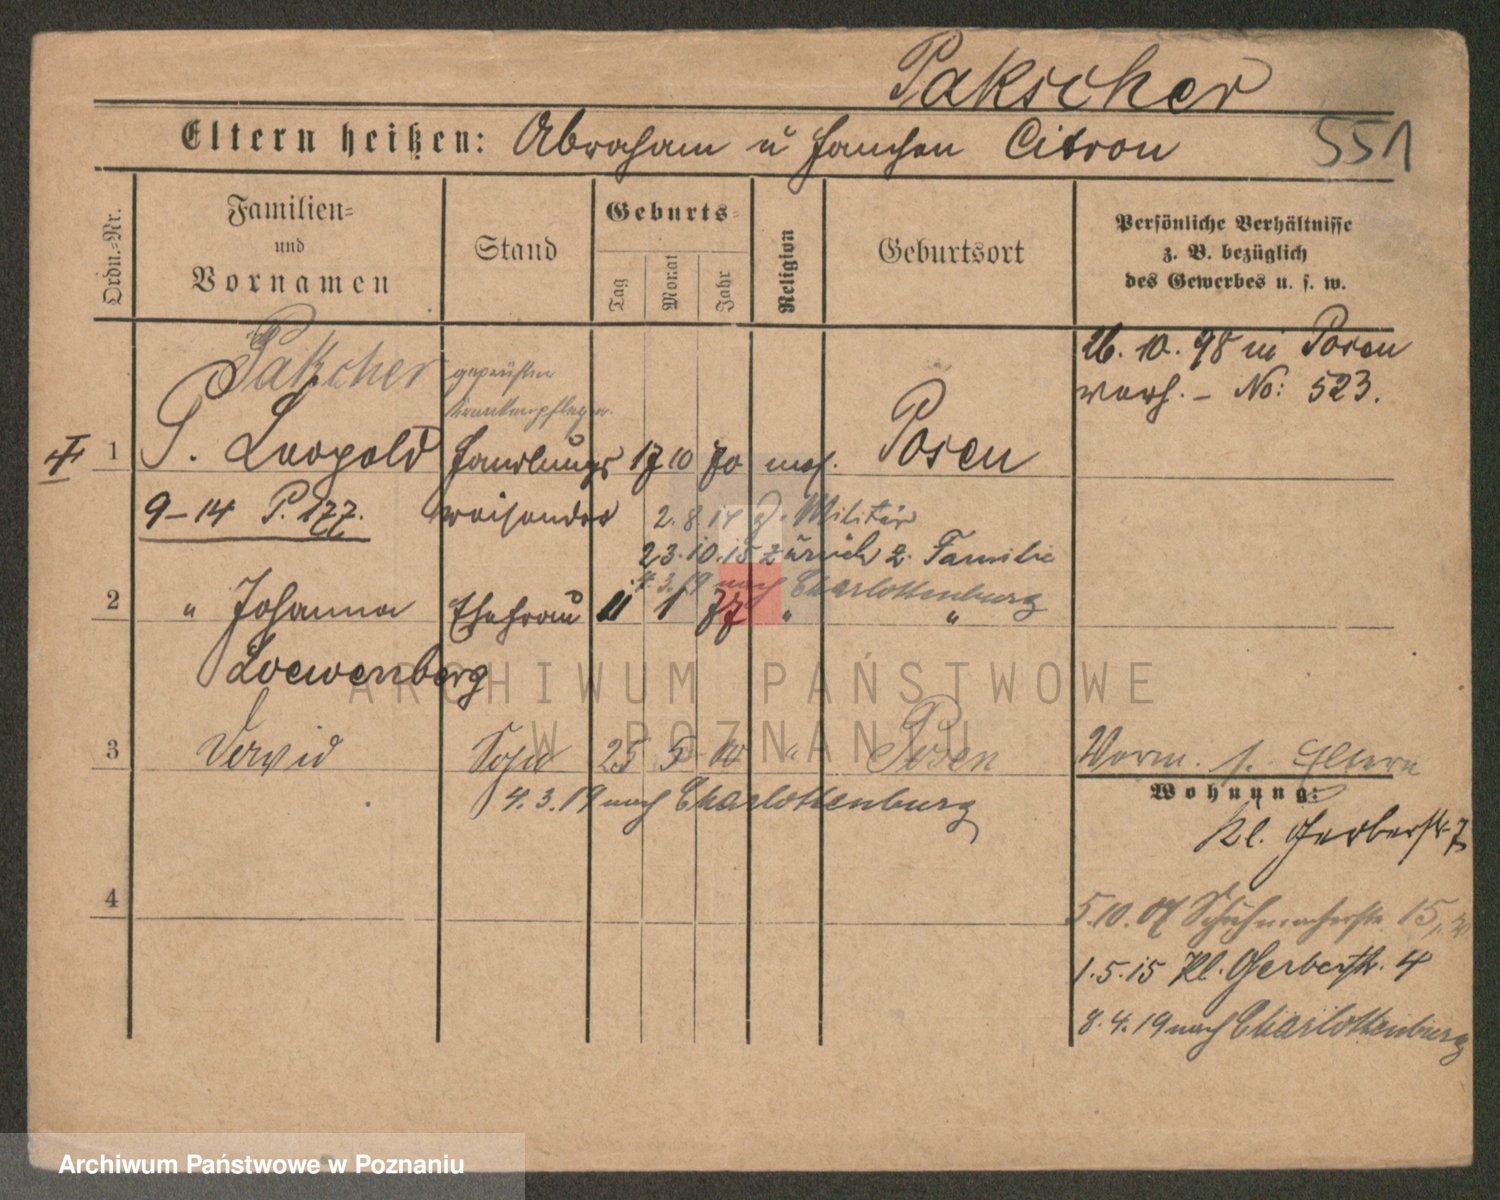 Pakscher
Eltern heißen: Abraham u Fanchen Citron
551
Ordn.-Nr.
Familien-
und
Vornamen
Stand
Geburts-
Tag
Monat
Jahr
Religion
Geburtsort
Persönliche Verhältnisse
z. B. bezüglich
des Gewerbes u. s. w.
26. 10. 98 in Posen
verh. - No: 523.
Pakscher
geprüfter
Krankenpfleger.
1 P. Leopold Handlungs 17 10 70 mos. Posen
9-14 P. 177. reisender
2. 8. 14 z. Militär
23. 10. 15 zurück z. Familie
4. 3. 19 nach Charlottenburg
2 " Johanna Ehefrau 11 1 77 " "
Loewenberg
3 Sohn 25 5 " Posen
4. 3. 19 nach Charlottenburg
Vorm. s. Eltern
Wohnung:
Kl. Gerberstr 7
5. 10. 07 Schuhmacherstr. 15
1. 5. 15 Kl. Gerberstr. 4
8. 4. 19 nach Charlottenburg
4
ARCHIWUM PAŃSTWOWE
W POZNANIU
Archiwum Państwowe w Poznaniu